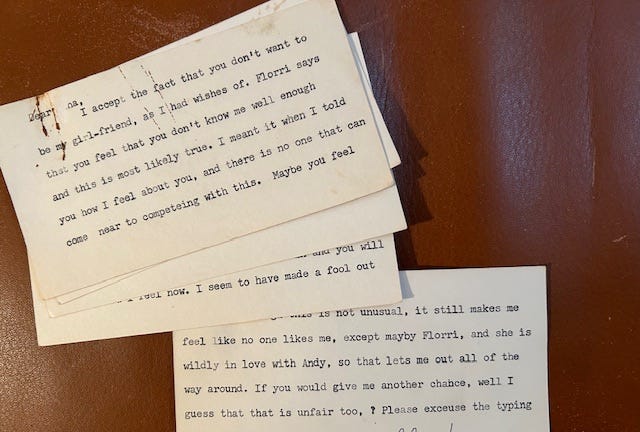 Dear na,
I accept the fact that you don't want to
be my girl-friend, as I had wishes of. Florri says
that you feel that you don't know me well enough
and this is most likely true. I meant it when I told
you how I feel about you, and there is no one that can
come near to competeing with this. Maybe you feel
and you will
I feel now. I seem to have made a fool out
this is not unusual, it still makes me
feel like no one likes me, except mayby Florri, and she is
wildly in love with Andy, so that lets me out all of the
way around. If you would give me another chance, well I
guess that that is unfair too, ? Please exceuse the typing